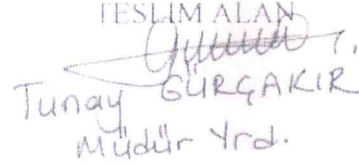 TESLİM ALAN
Tunay GÜRÇAKIR
Müdür Yrd.